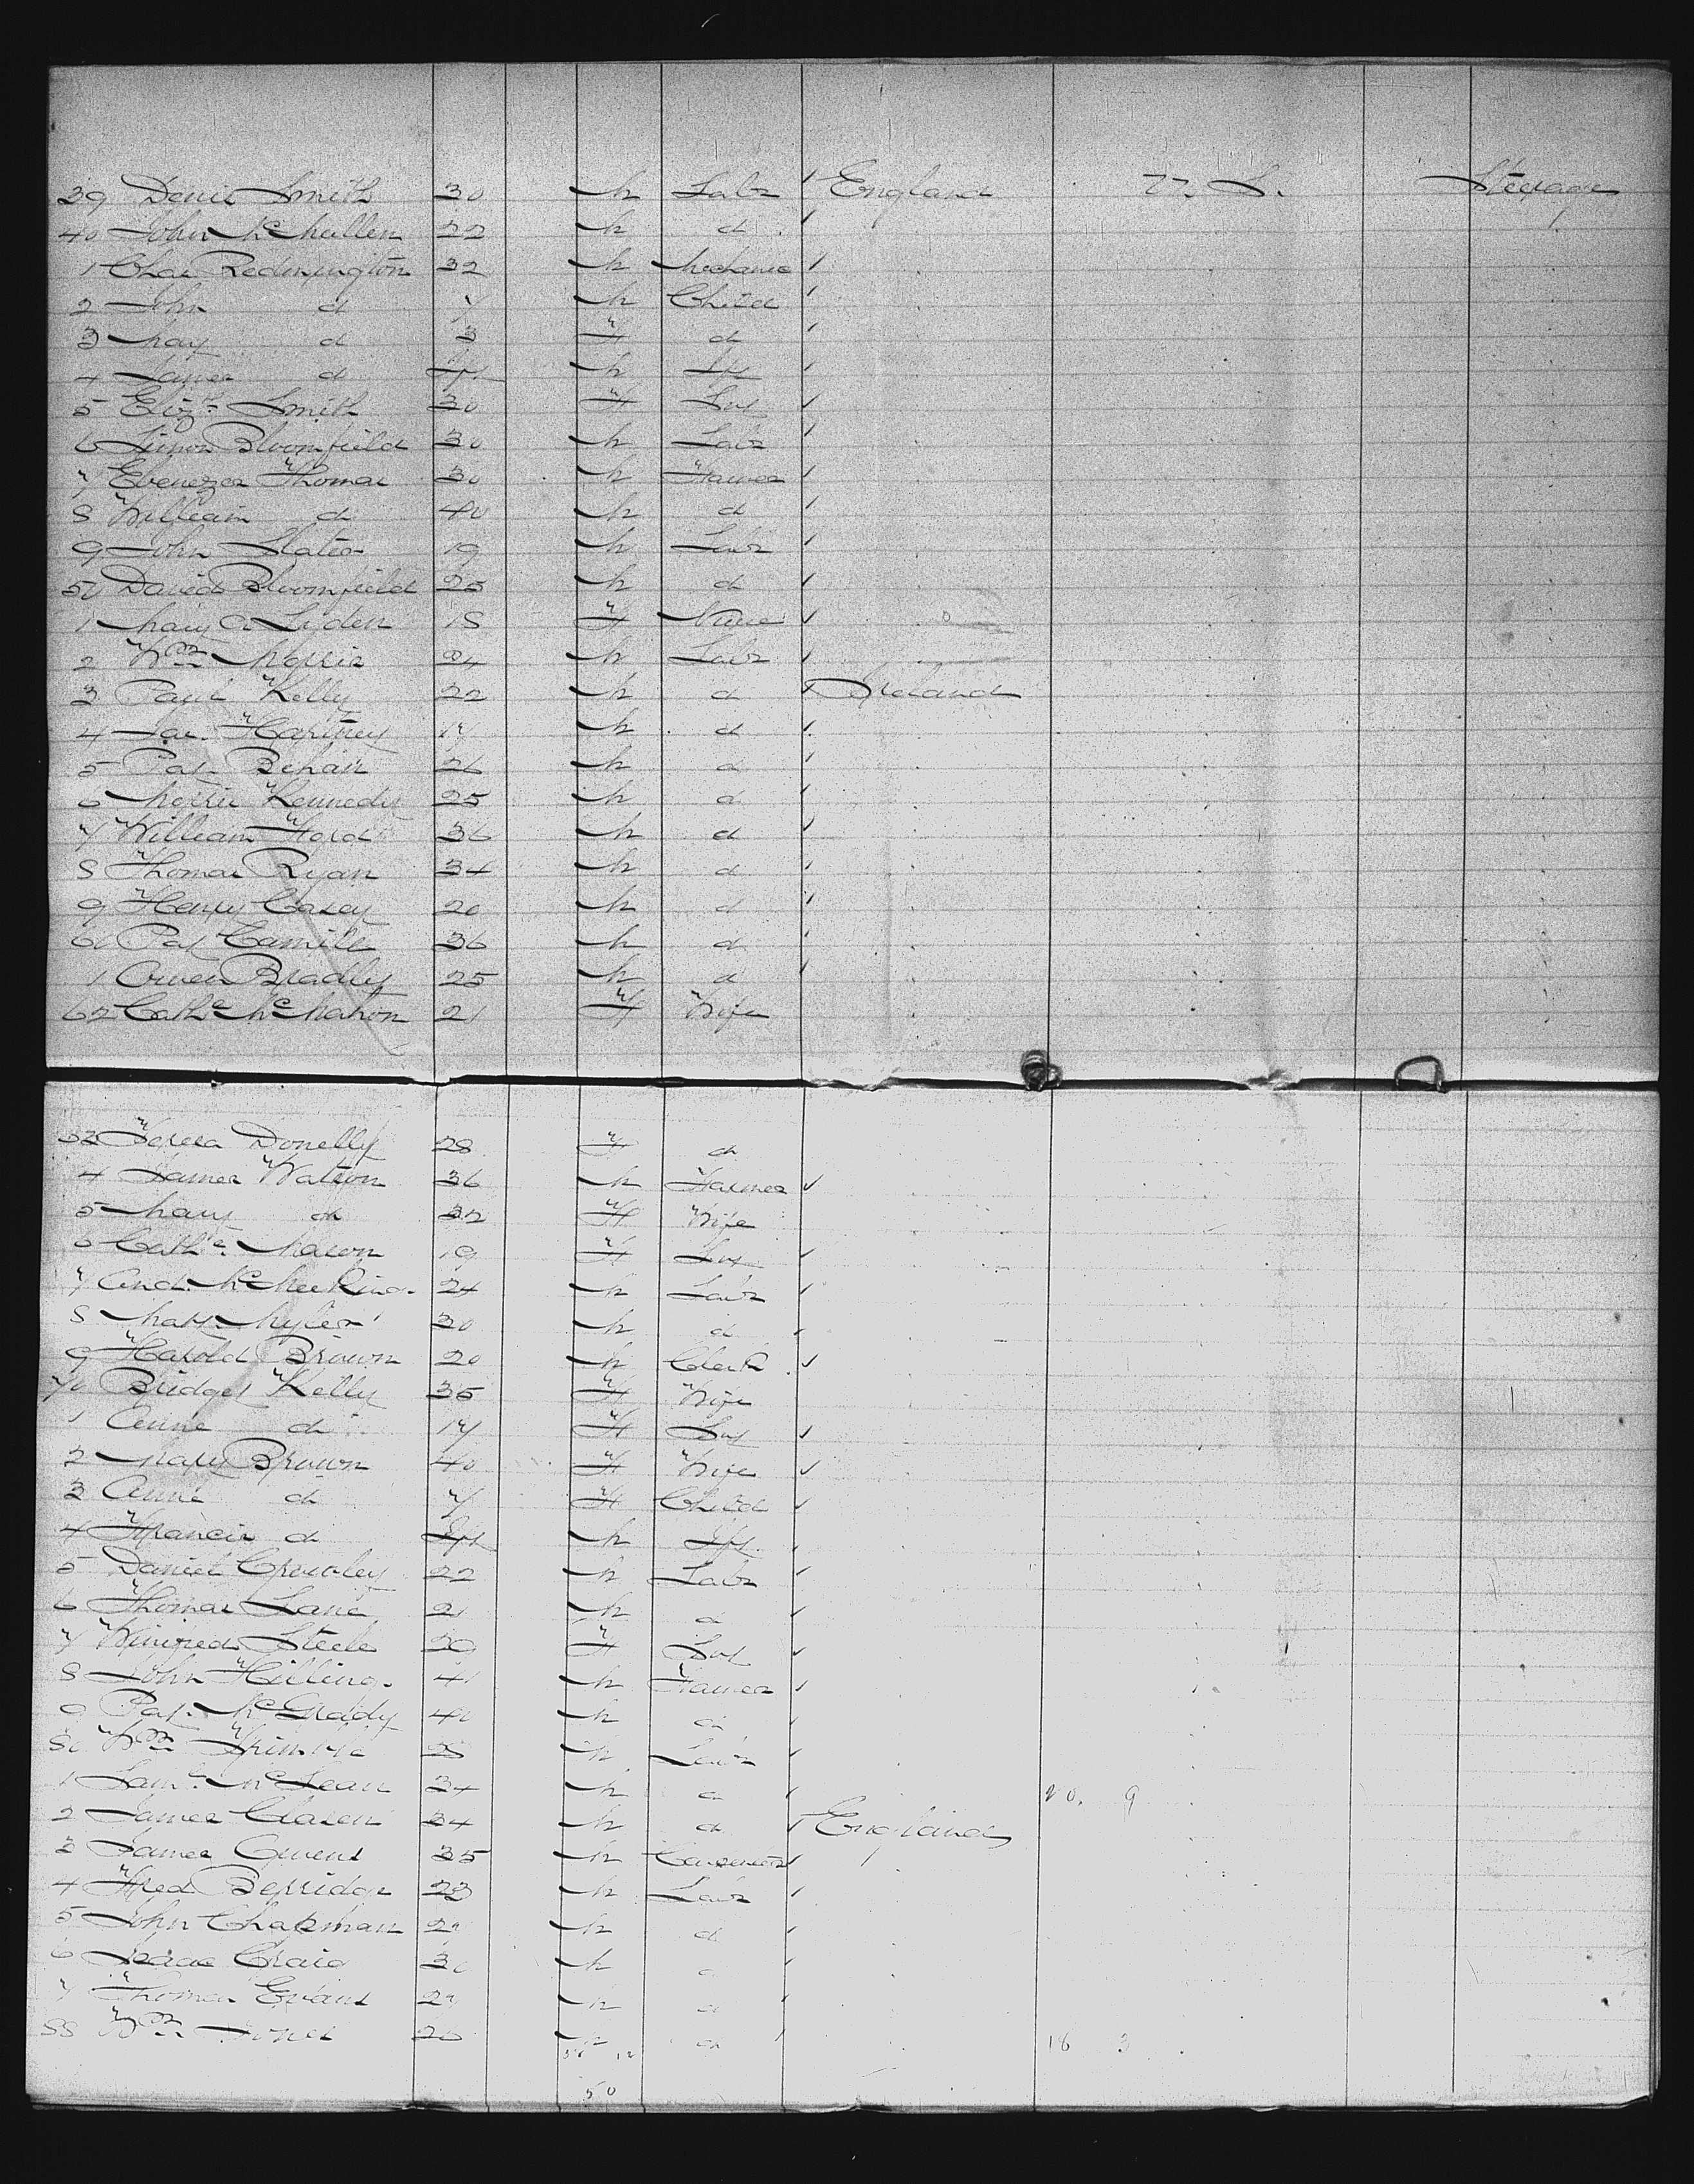 39 Denis Smith 30 M Labr England U. S. Steerage
40 John McMullen 22 M d
1 Chas Redinington 32 M Mechanic
2 John d 7 M Child
3 May d 3 F d
4 James d Inf M Inf
5 Elizth Smith 30 F Svt
6 Simon Bloomfield 30 M Labr
7 Ebenezer Thomas 30 M Farmer
8 William d 40 M d
9 John Slater 19 M Labr
50 David Bloomfield 25 M d
1 Mary A Lyden 18 F Nurse
2 Wm Morris 24 M Labr
3 Patk Kelly 22 M d Ireland
4 Jas. Hartney 17 M d
5 Pat Behan 26 M d
6 Morris Kennedy 25 M d
7 William Ford 36 M d
8 Thomas Ryan 34 M d
9 Henry Casey 20 M d
60 Pat 36 M d
1 Owen Bradley 25 M d
62 Cathe McMahon 21 F Wife
63 Teresa Donelly 28 F d
4 James Watson 36 M Farmer
5 Mary d 32 F Wife
6 Cathe Mason 19 F Svt
7 And. McMeeking 24 M Labr
8 Matt Myler 30 M d
9 Harold Brown 20 M Clerk
70 Bridget Kelly 35 F Wife
1 Anne d 17 F Svt
2 Mary Brown 40 F Wife
3 Anne d 7 F Child
4 Francis d Inf M Inf
5 Daniel Crowley 22 M Labr
6 Thomas Lane 21 M d
7 Winifred Steele 20 F Svt
8 John Hilling 41 M Farmer
9 Pat. McGrady 40 M d
80 Wm 28 M Labr
1 Saml McLean 34 M d 20. 9
2 James Claren 34 M d England
3 James Owens 35 M Carpenter
4 Fred Berridge 23 M Labr
5 John Chapman 29 M d
6 Isaac Craig 30 M d
7 Thomas Evans 27 M d
88 Wm Jones 26 M d 18 3
38 12
50